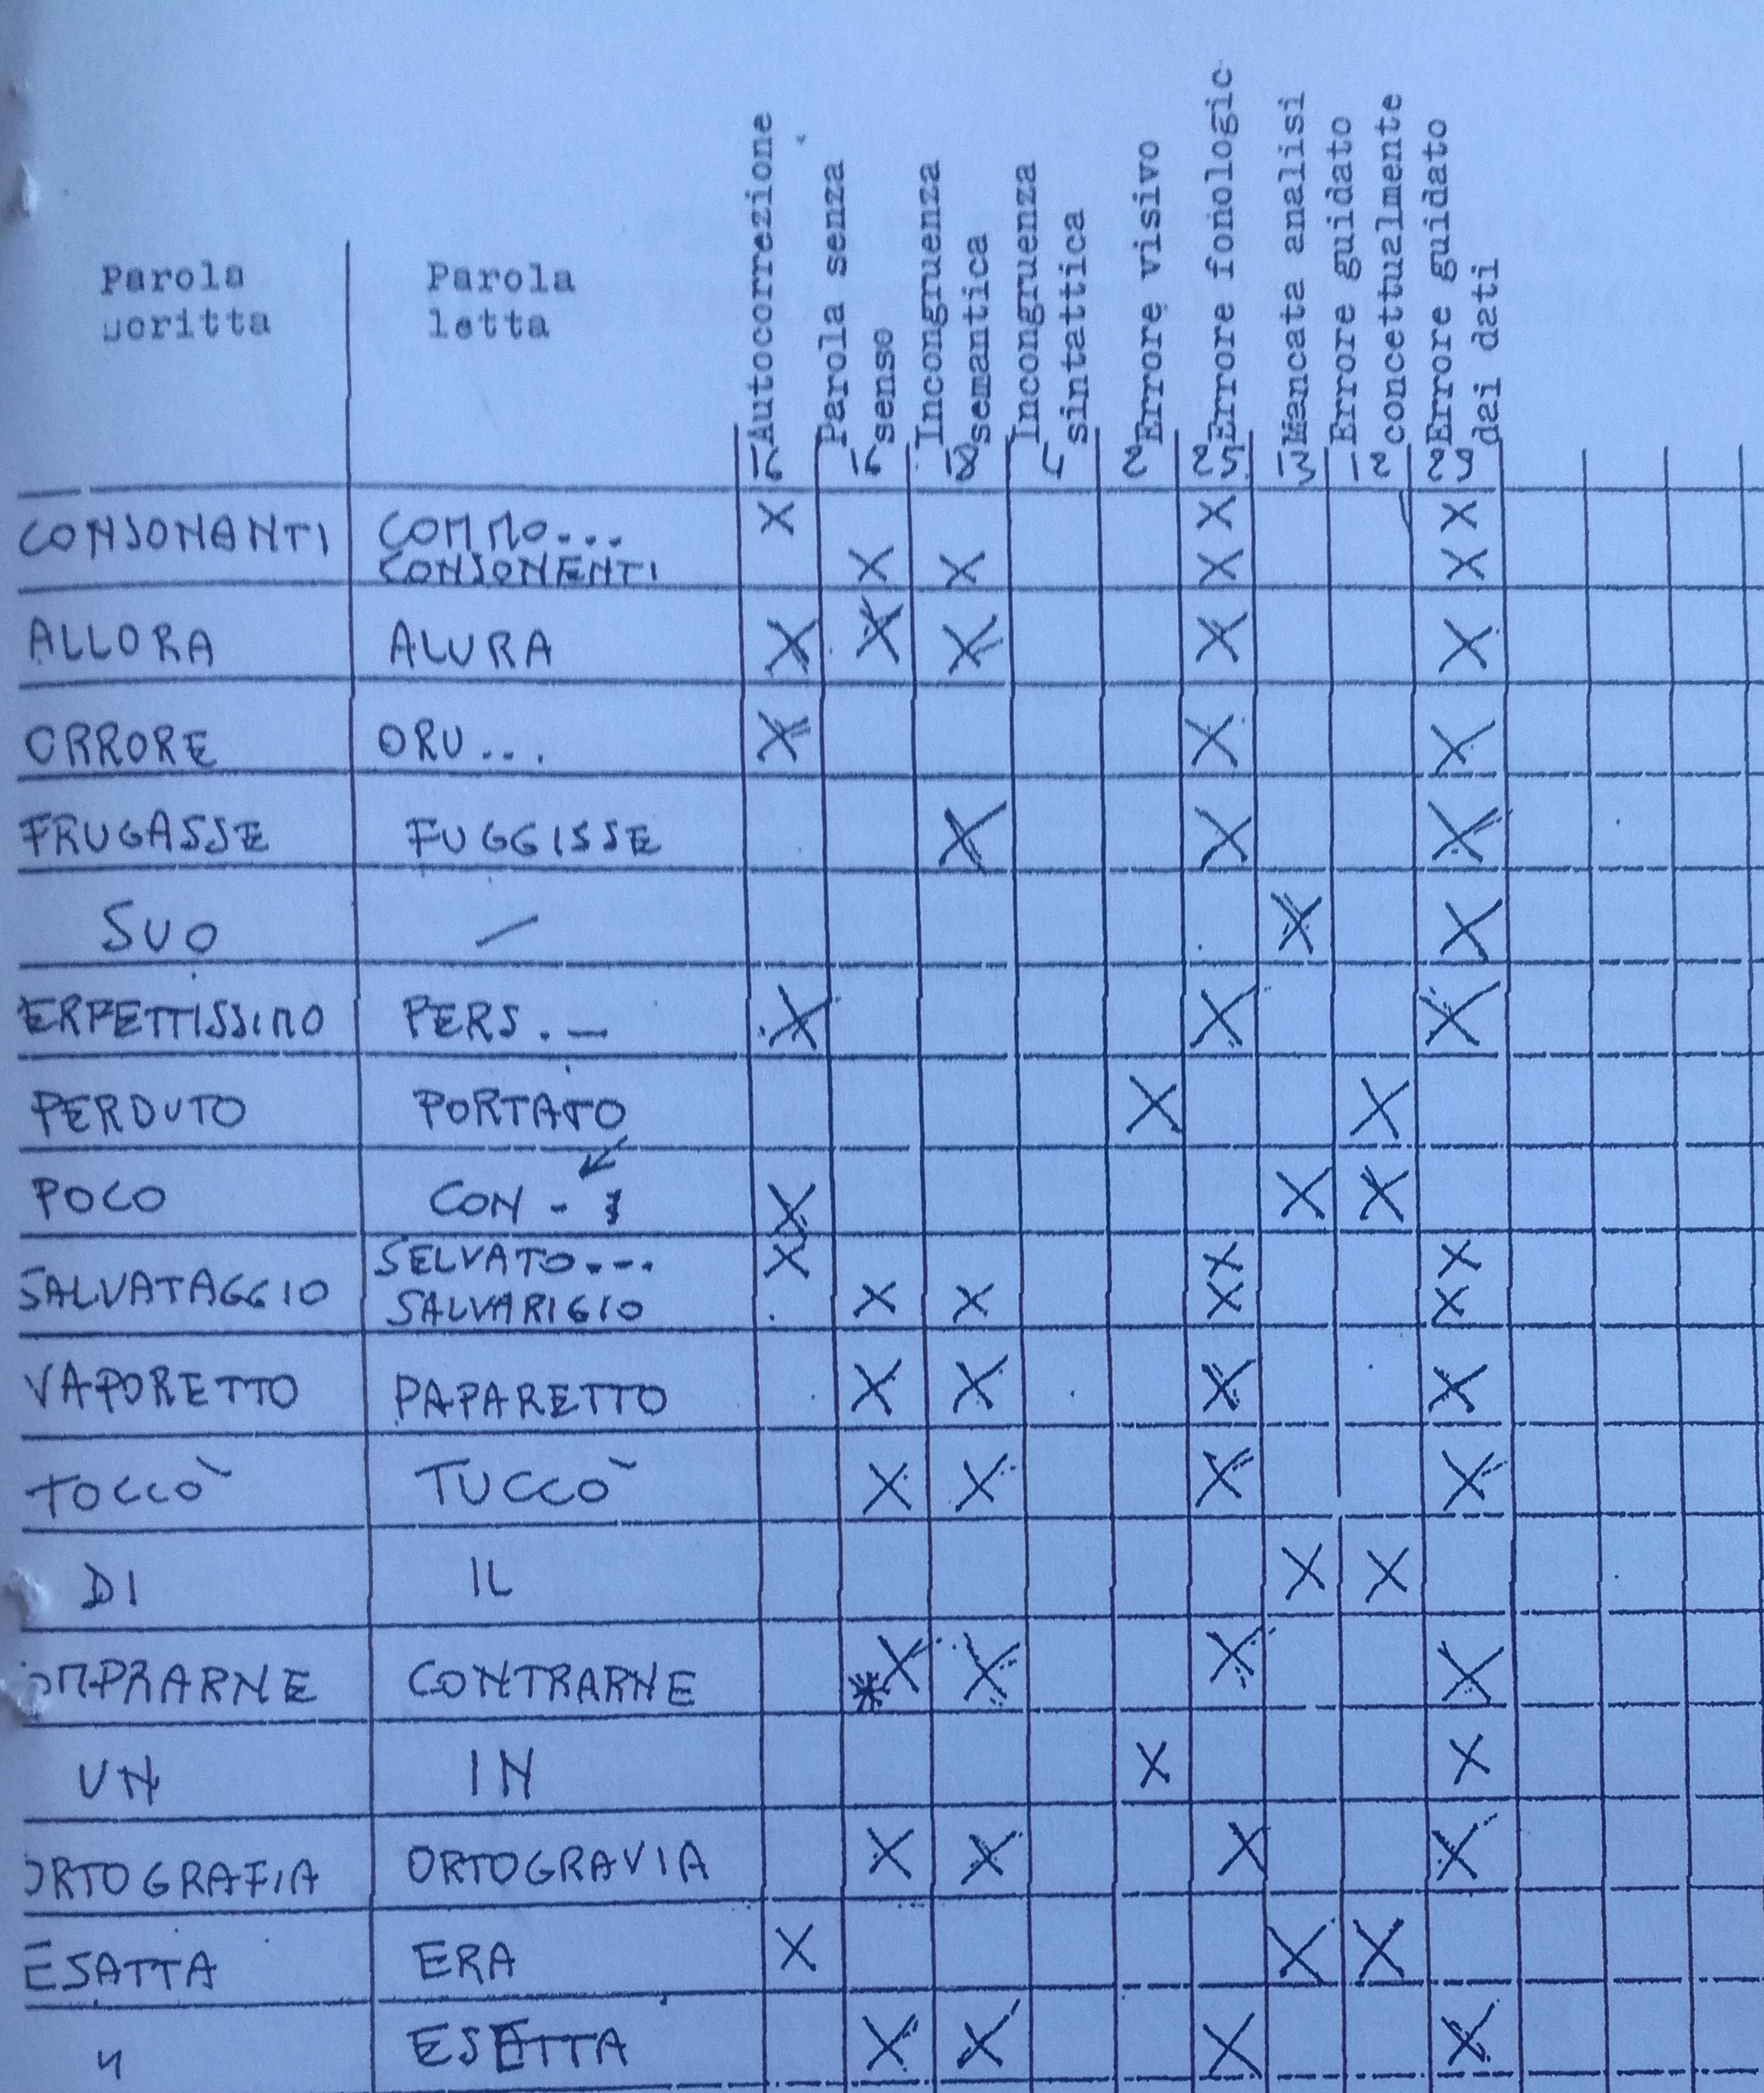 Parola scritta
Parola letta
Autocorrezione
Parola senza senso
Incongruenza semantica
Incongruenza sintattica
Errore visivo
Errore fonologic
Mancata analisi
Errore guidato concettualmente
Errore guidato dai dati
CONSONANTI COMMO... X X X
CONSONENTI X X X X
ALLORA ALURA X X X X X
ORRORE ORU... X X X
FRUGASSE FUGGISSE X X X
SUO — X X
ERFETTISSIMO PERS.— X X X
PERDUTO PORTATO X X
POCO CON - X X X
SALVATAGGIO SELVATO.... X X X
SALVARIGIO X X X X
VAPORETTO PAPARETTO X X X X
TOCCÒ TUCCÒ X X X X
DI IL X X
OMPRARNE CONTRARNE * X X X X
UN IN X X
ORTOGRAFIA ORTOGRAVIA X X X X
ESATTA ERA X X X
" ESETTA X X X X